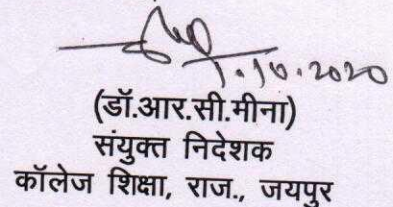 1.10.2020
(डॉ.आर.सी.मीना)
संयुक्त निदेशक
कॉलेज शिक्षा, राज., जयपुर